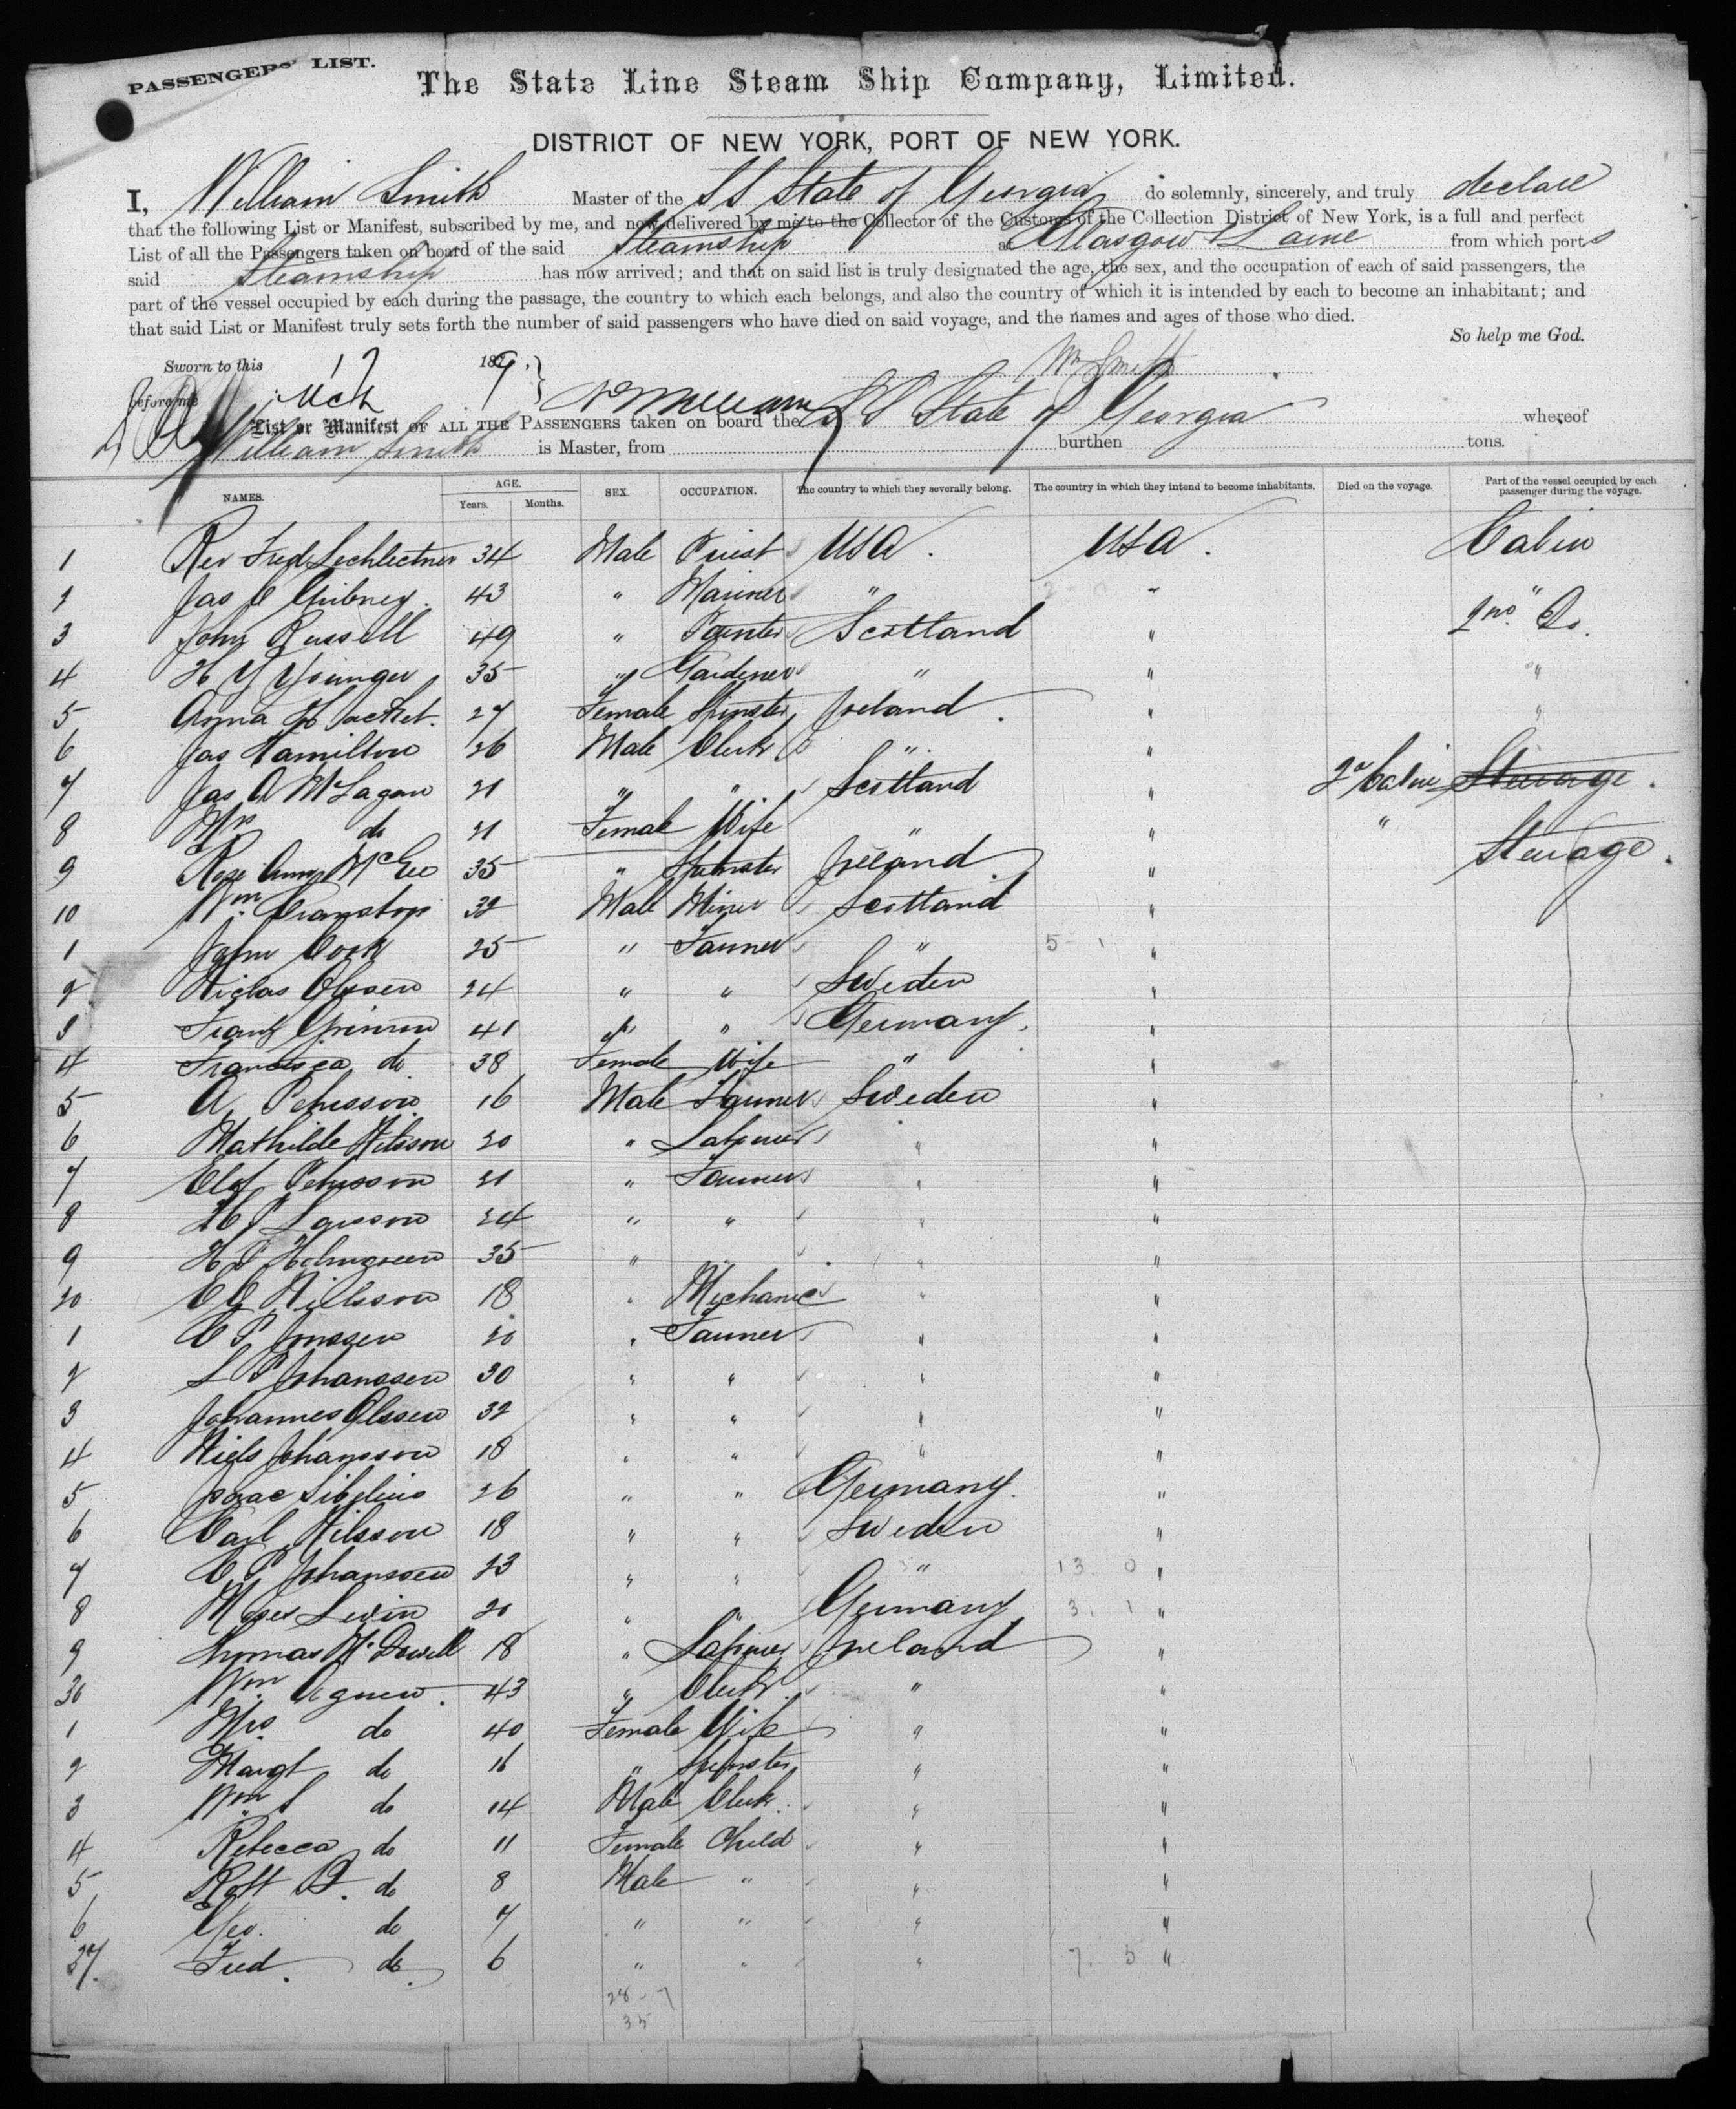 PASSENGERS' LIST.
The State Line Steam Ship Company, Limited.
DISTRICT OF NEW YORK, PORT OF NEW YORK.
I, William Smith Master of the SS State of Georgia do solemnly, sincerely, and truly declare
that the following List or Manifest, subscribed by me, and now delivered by me to the Collector of the Customs of the Collection District of New York, is a full and perfect
List of all the Passengers taken on board of the said Steamship at Glasgow & Larne from which ports
said Steamship has now arrived; and that on said list is truly designated the age, the sex, and the occupation of each of said passengers, the
part of the vessel occupied by each during the passage, the country to which each belongs, and also the country of which it is intended by each to become an inhabitant; and
that said List or Manifest truly sets forth the number of said passengers who have died on said voyage, and the names and ages of those who died.
So help me God.
Sworn to this 17 1879. Wm Smith
before me Mch
List or Manifest OF ALL THE PASSENGERS taken on board the SS State of Georgia whereof
William Smith is Master, from burthen tons.
NAMES. AGE. Years. Months. SEX. OCCUPATION. The country to which they severally belong. The country in which they intend to become inhabitants. Died on the voyage. Part of the vessel occupied by each passenger during the voyage.
1 Rev Fred Lechlectner 34 Male Priest USA. USA. Cabin
2 Jas C Gibney. 43 " Mariner " " "
3 John Russell 49 " Painter Scotland " 2nd Do.
4 H Y Younger 35 " Gardener " " "
5 Anna H Jacket. 27 Female Spinster Ireland. " "
6 Jas Hamilton 26 Male Clerk " "
7 Jas A McLagan 21 " " Scotland " 2d Cabin Steerage.
8 Mrs do 21 Female Wife " " "
9 Rose Ann McGee 35 " Spinster Ireland. " Steerage.
10 Wm. Cranston 32 Male Miner Scotland "
1 John Cook 25 " Farmer " 5 1 "
2 Niclas Olssen 24 " " Sweden "
3 Franz Grimm 41 " " Germany. "
4 Francisca do 38 Female Wife " "
5 A. Pehrsson 16 Male Farmer Sweden "
6 Mathilde Nilsson 20 " Labourer " "
7 Elof Pehrsson 21 " Farmer " "
8 P Larsson 24 " " " "
9 H P Holmgreen 35 " " " "
20 C G Nillsson 18 " Mechanic " "
1 C P Jonssen 20 " Farmer " "
2 L P Johanssen 30 " " " "
3 Johannes Olssen 32 " " " "
4 Niels Johansson 18 " " " "
5 Isaac Sibelius 26 " " Germany. "
6 Carl Nilsson 18 " " Sweden "
7 C. P Johanssen 23 " " " 13 0 "
8 Moses Levin 20 " " Germany 3. 1 "
9 Thomas McDowell 18 " Labourer Ireland "
30 Wm. Agnew. 43 " Clerk " "
1 Mrs do 40 Female Wife " "
2 Margt do 16 " Spinster " "
3 Wm S do 14 Male Clerk. " "
4 Rebecca do 11 Female Child " "
5 Robt D. do 8 Male " " "
6 Geo. do 7 " " " "
37. Fred. do. 6 " " " 7. 5 "
28-7
35